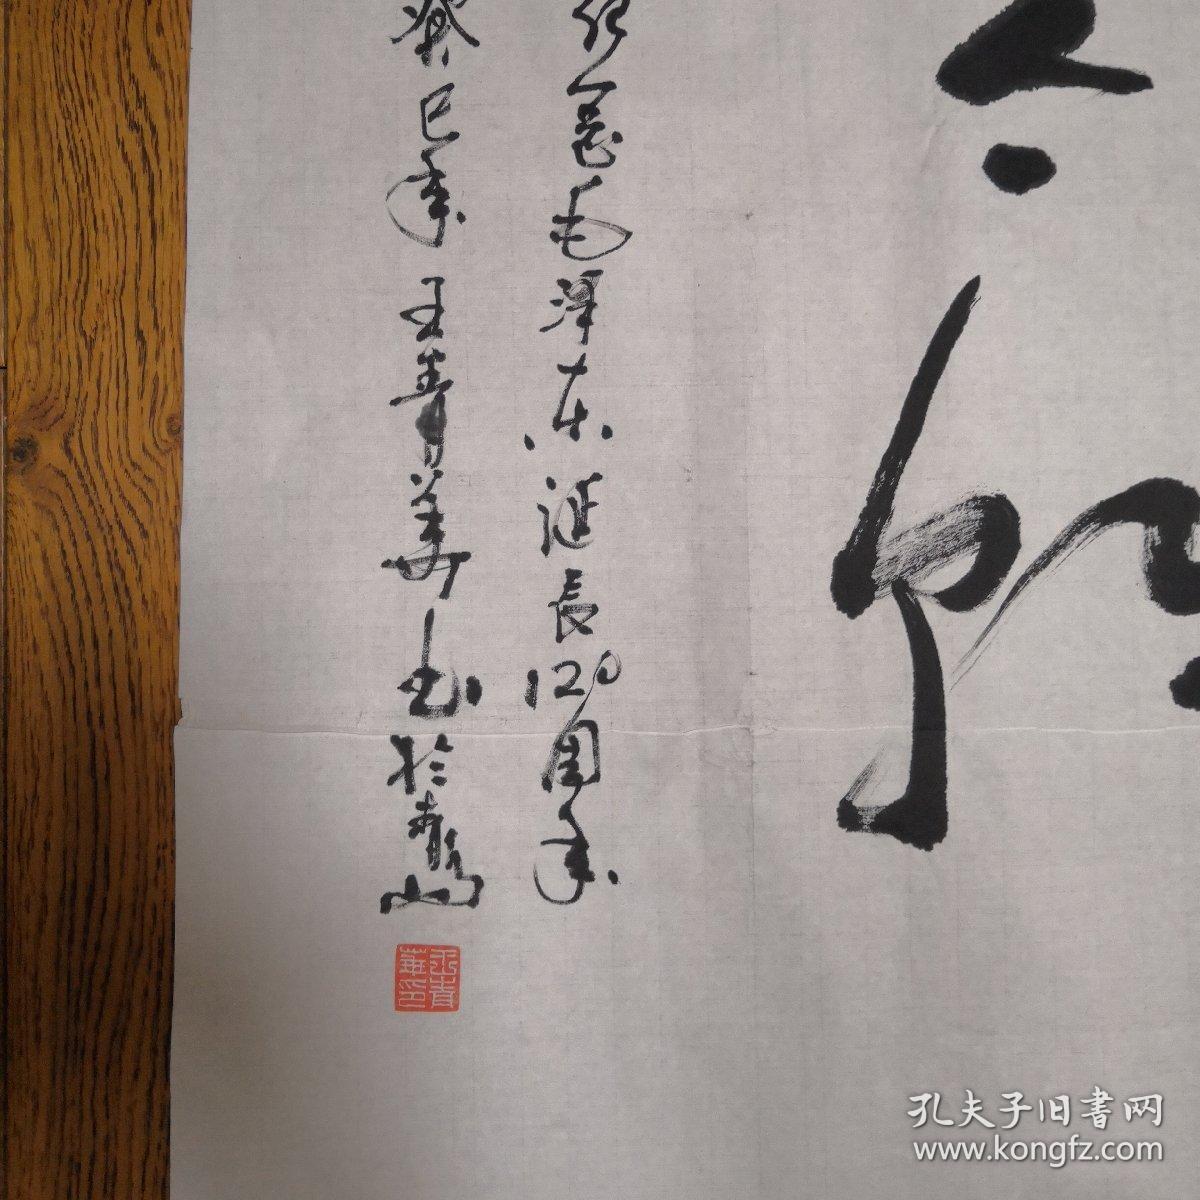 纪念毛泽东诞辰120周年
癸巳年王青華书於青島
王青華印
孔夫子旧書网
www.kongfz.com